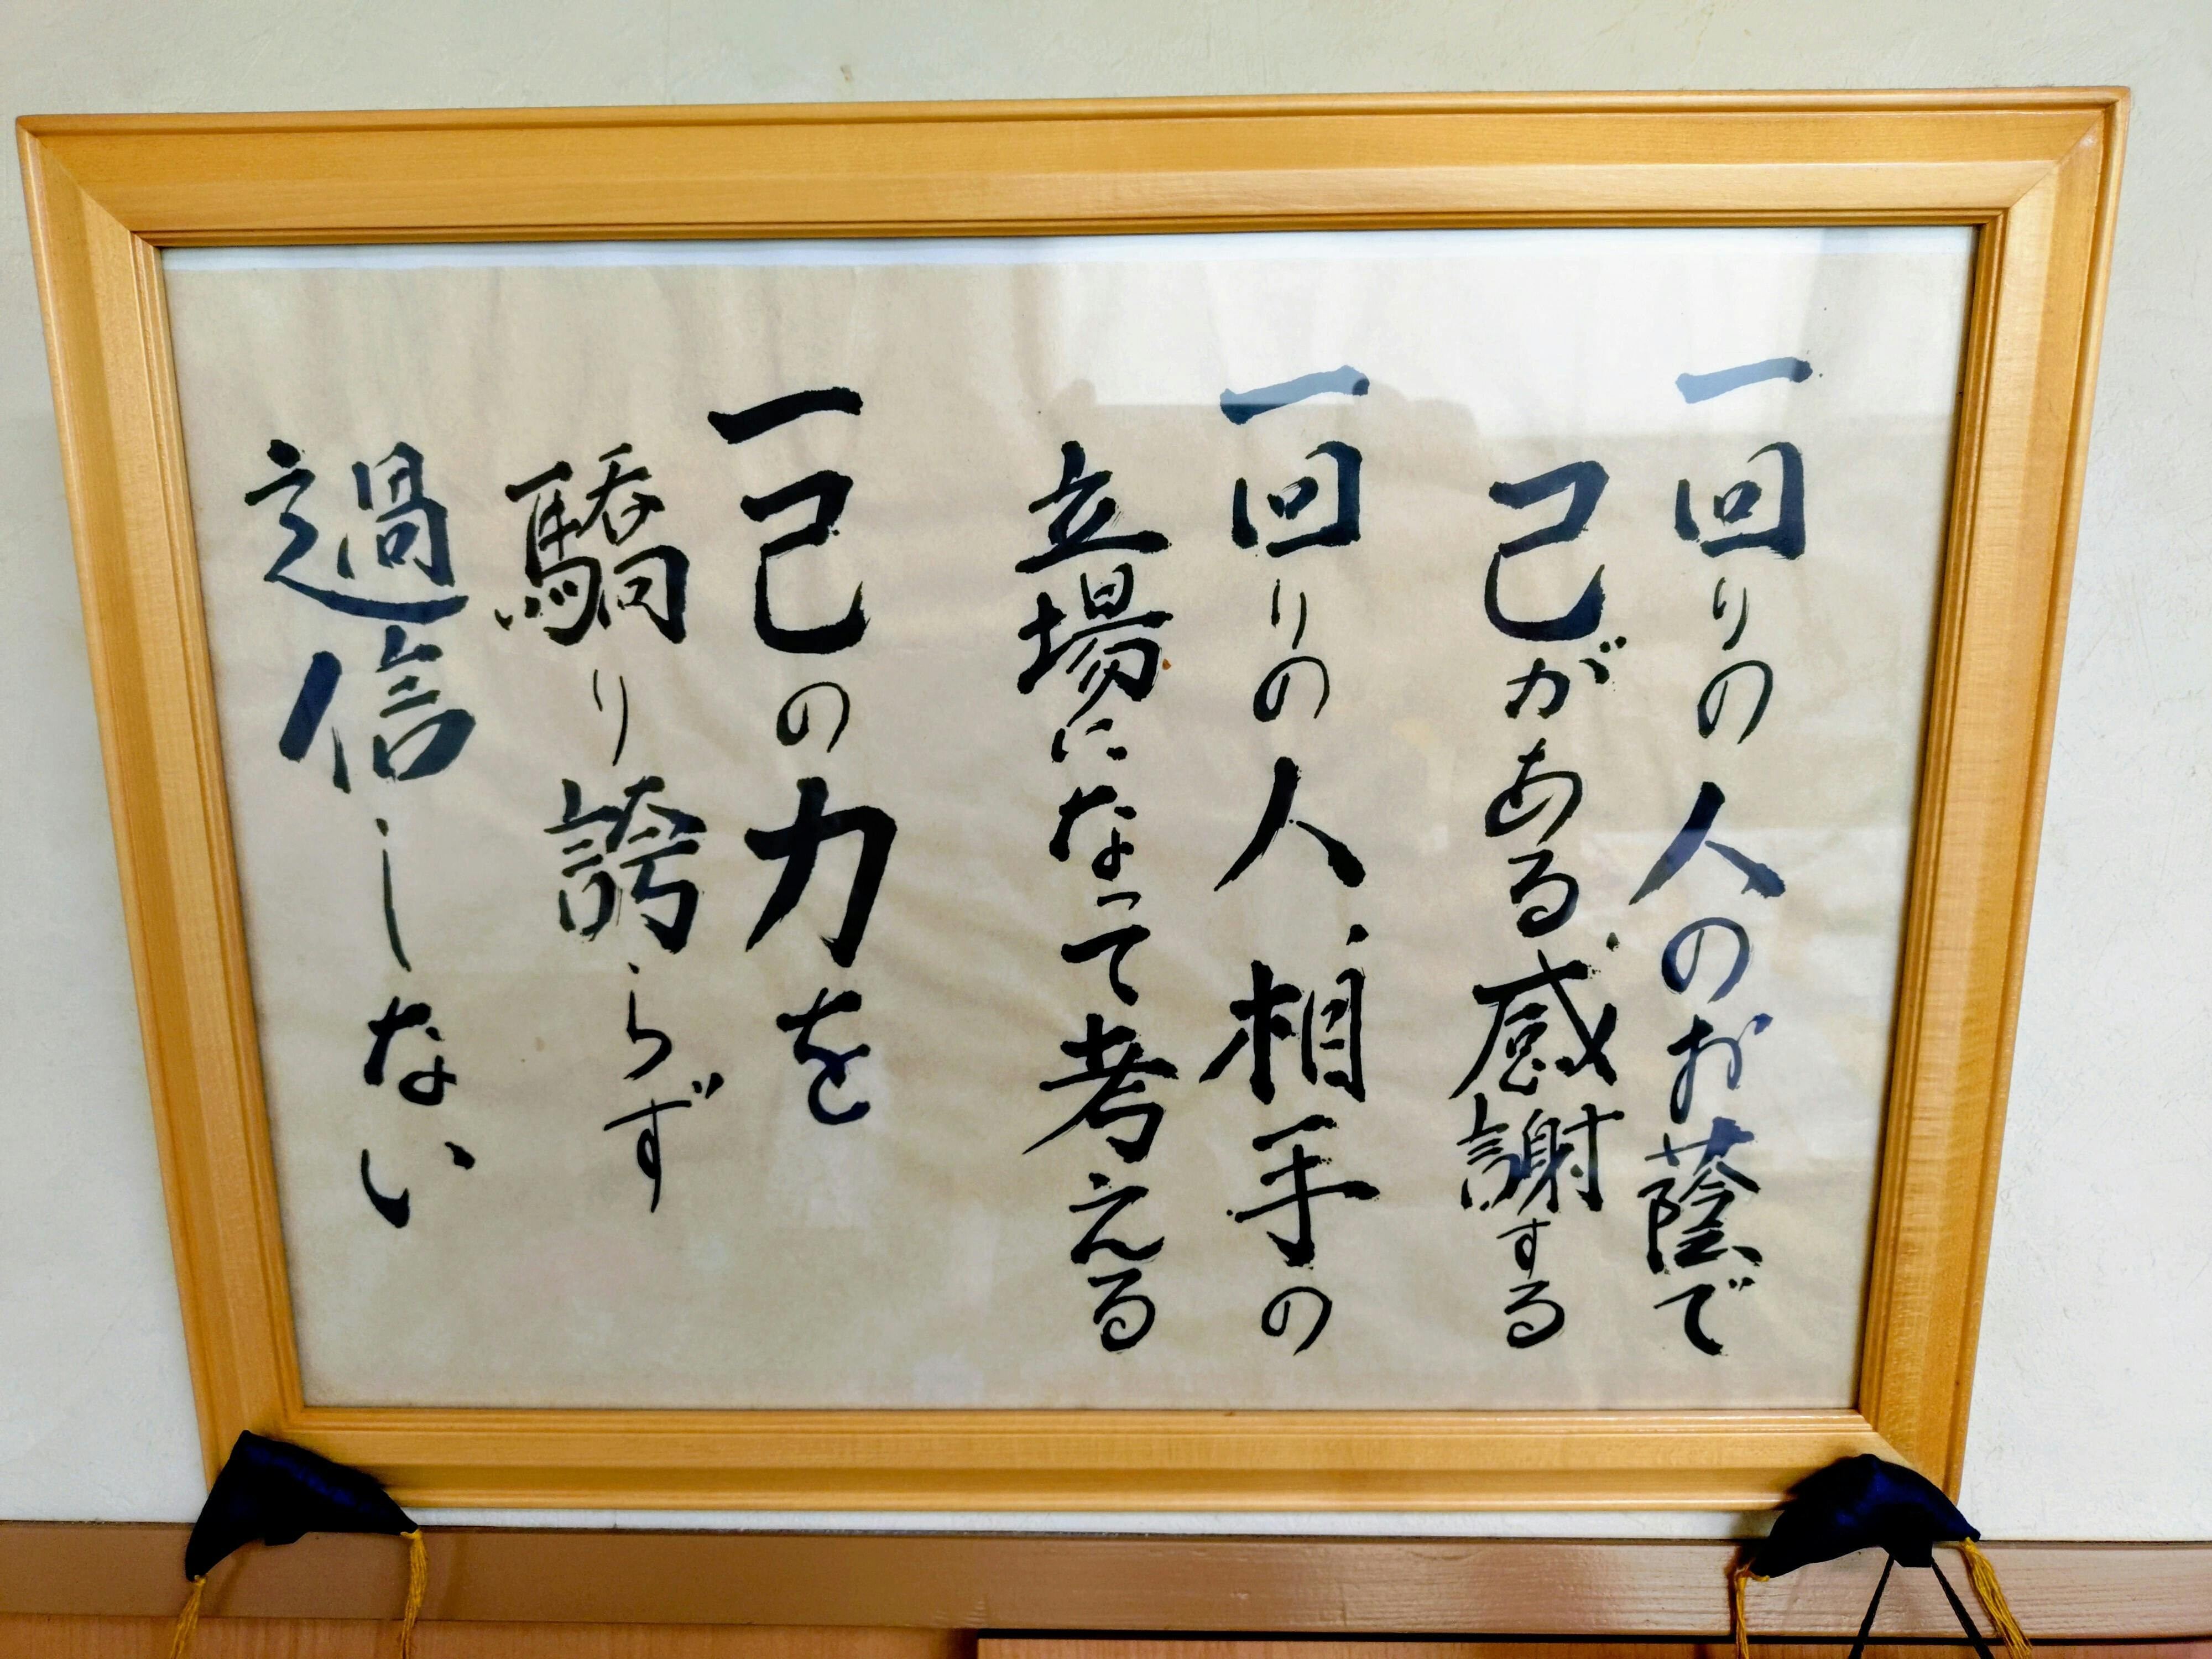 一回りの人のお蔭で
己がある、感謝する
一回りの人、相手の
立場になって考える
一己の力を
驕り誇らず
過信しない